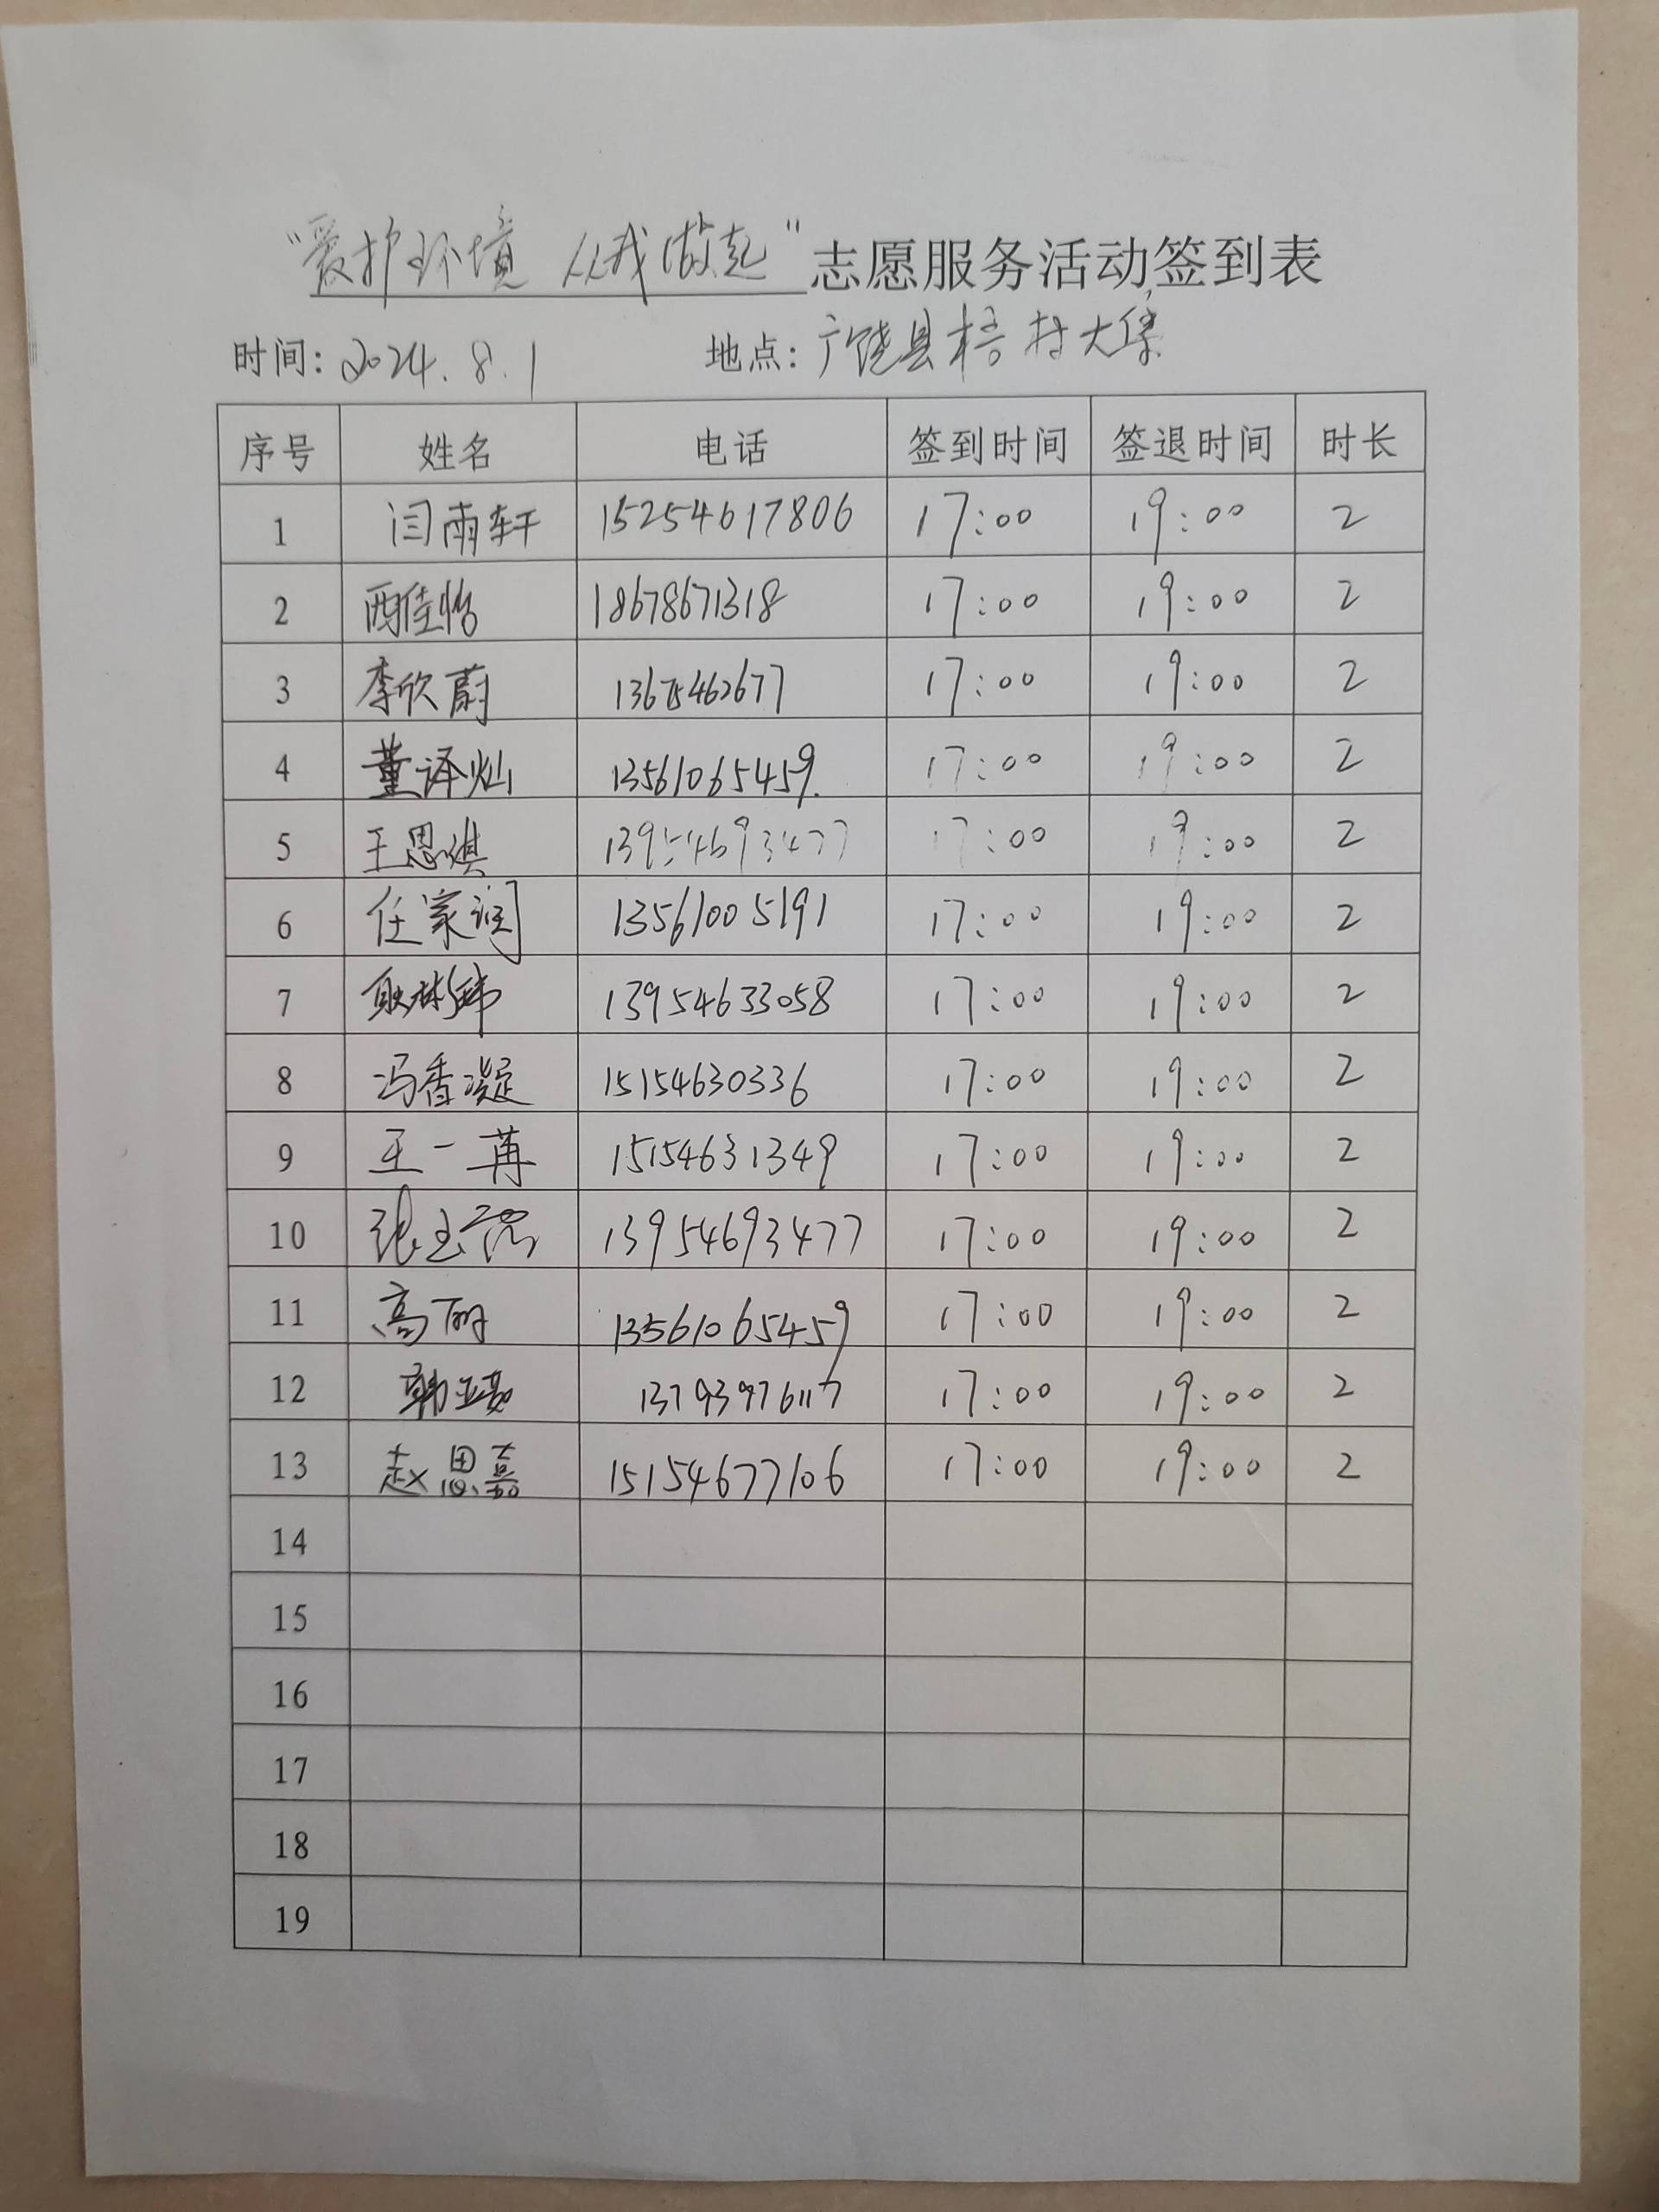 “爱护环境 从我做起”志愿服务活动签到表
时间：2024.8.1 地点：广饶县梧村大集
序号 姓名 电话 签到时间 签退时间 时长
1 闫雨轩 15254617806 17:00 19:00 2
2 西佳怡 18678671318 17:00 19:00 2
3 李欣蔚 13675462677 17:00 19:00 2
4 董译灿 13561065459 17:00 19:00 2
5 王思淇 13954693477 17:00 19:00 2
6 任家润 13561005191 17:00 19:00 2
7 耿彬纬 13954633058 17:00 19:00 2
8 冯香凝 15154630336 17:00 19:00 2
9 王一苒 15154631349 17:00 19:00 2
10 张玉 13954693477 17:00 19:00 2
11 高丽 13561065459 17:00 19:00 2
12 韩 17:00 19:00 2
13 赵思嘉 15154677106 17:00 19:00 2
14
15
16
17
18
19